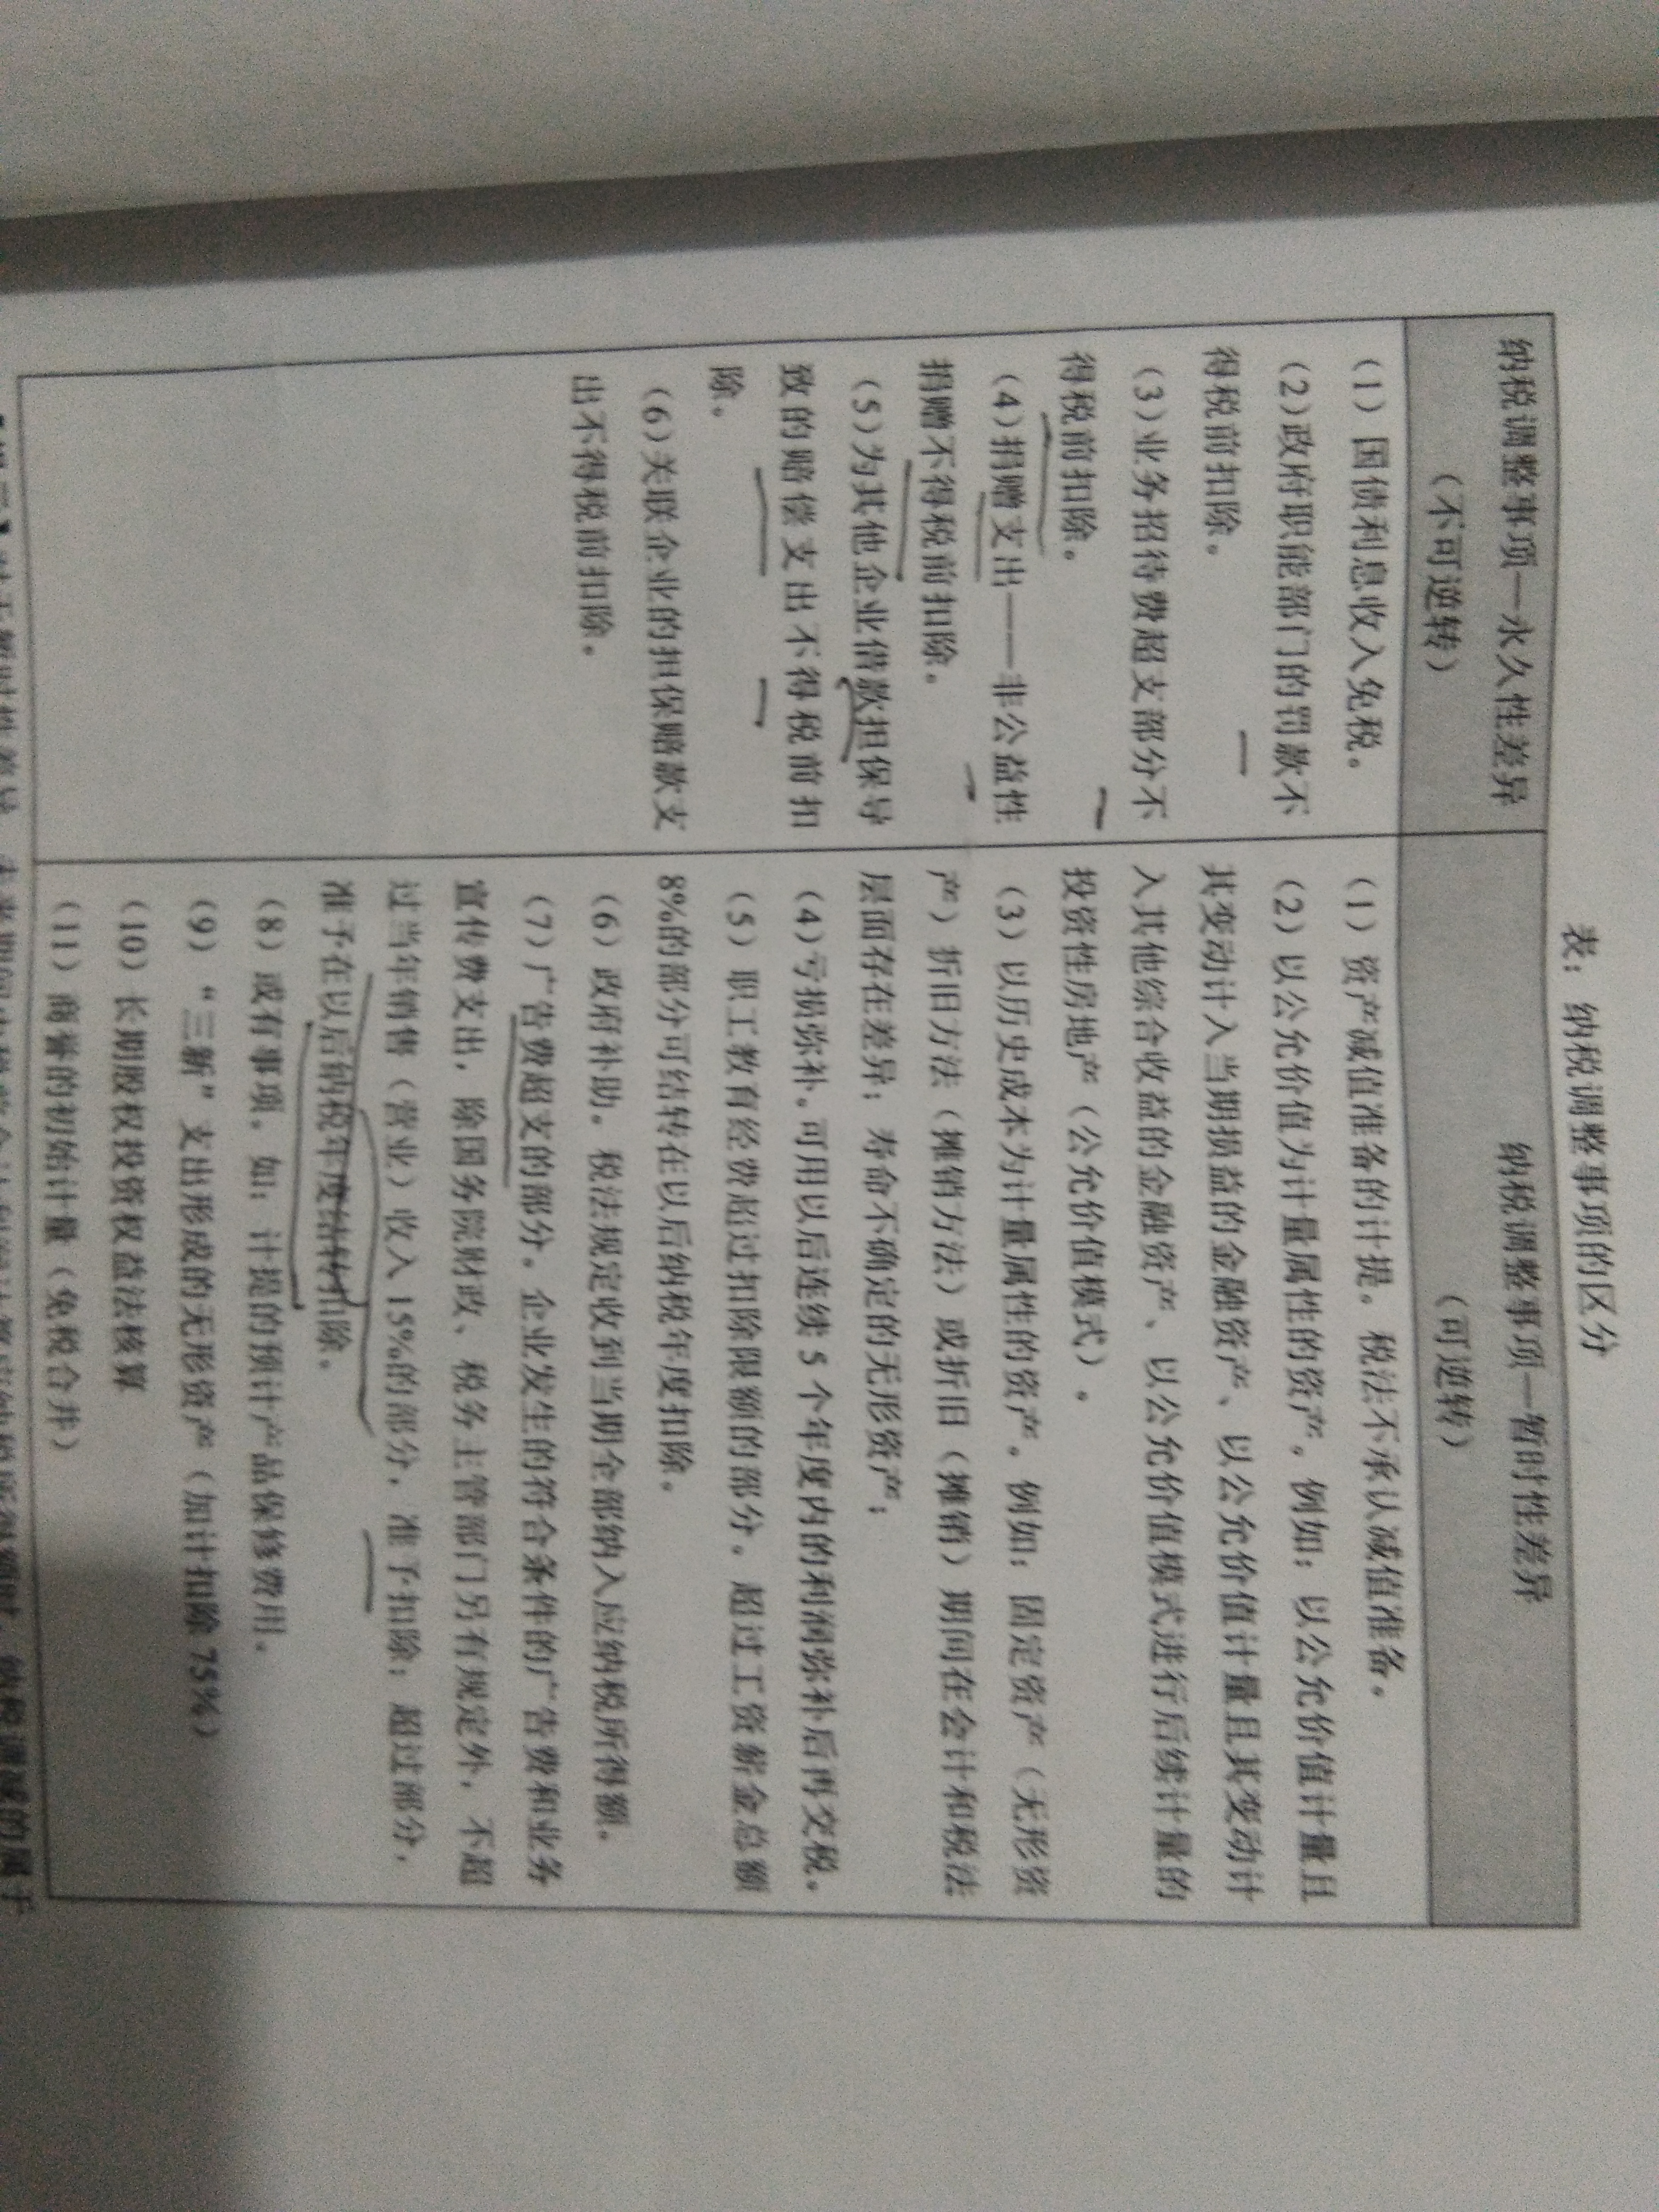 表：纳税调整事项的区分
纳税调整事项—永久性差异
（不可逆转）
纳税调整事项—暂时性差异
（可逆转）
（1）国债利息收入免税。
（2）政府职能部门的罚款不
得税前扣除。
（3）业务招待费超支部分不
得税前扣除。
（4）捐赠支出——非公益性
捐赠不得税前扣除。
（5）为其他企业借款担保导
致的赔偿支出不得税前扣
除。
（6）关联企业的担保赔款支
出不得税前扣除。
（1）资产减值准备的计提。税法不承认减值准备。
（2）以公允价值为计量属性的资产。例如：以公允价值计量且
其变动计入当期损益的金融资产、以公允价值计量且其变动计
入其他综合收益的金融资产、以公允价值模式进行后续计量的
投资性房地产（公允价值模式）。
（3）以历史成本为计量属性的资产。例如：固定资产（无形资
产）折旧方法（摊销方法）或折旧（摊销）期间在会计和税法
层面存在差异；寿命不确定的无形资产；
（4）亏损弥补。可用以后连续 5 个年度内的利润弥补后再交税。
（5）职工教育经费超过扣除限额的部分。超过工资薪金总额
8%的部分可结转在以后纳税年度扣除。
（6）政府补助。税法规定收到当期全部纳入应纳税所得额。
（7）广告费超支的部分。企业发生的符合条件的广告费和业务
宣传费支出，除国务院财政、税务主管部门另有规定外，不超
过当年销售（营业）收入 15%的部分，准予扣除；超过部分，
准予在以后纳税年度结转扣除。
（8）或有事项。如：计提的预计产品保修费用。
（9）“三新”支出形成的无形资产（加计扣除 75%）
（10）长期股权投资权益法核算
（11）商誉的初始计量（免税合并）